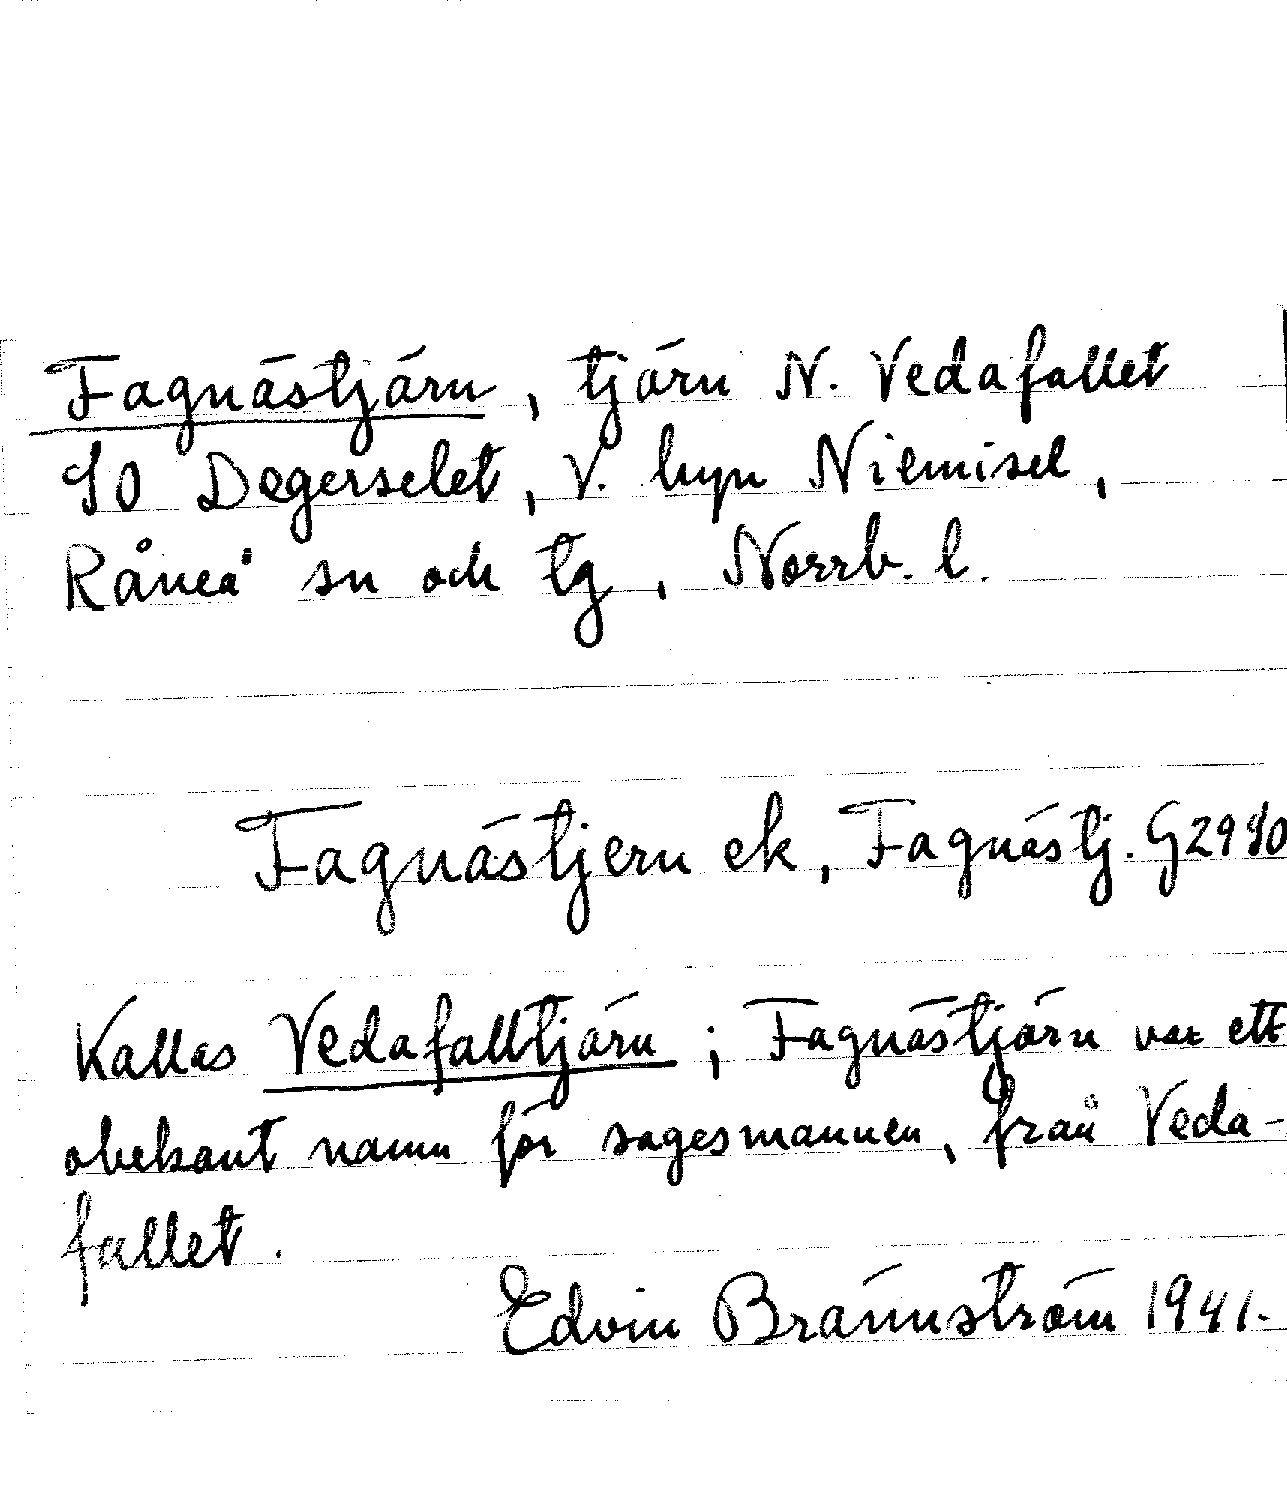 Fagnästjärn, tjärn N. Vedafallet
SO Degerselet, V. byn Niemisel,
Råneå sn och tg, Norrb. l.
Fagnästjern ek, Fagnästj. G 29 SO
Kallas Vedafalltjärn; Fagnästjärn var ett
obekant namn för sagesmannen, från Veda-
fallet.
Edvin Brännström 1941.